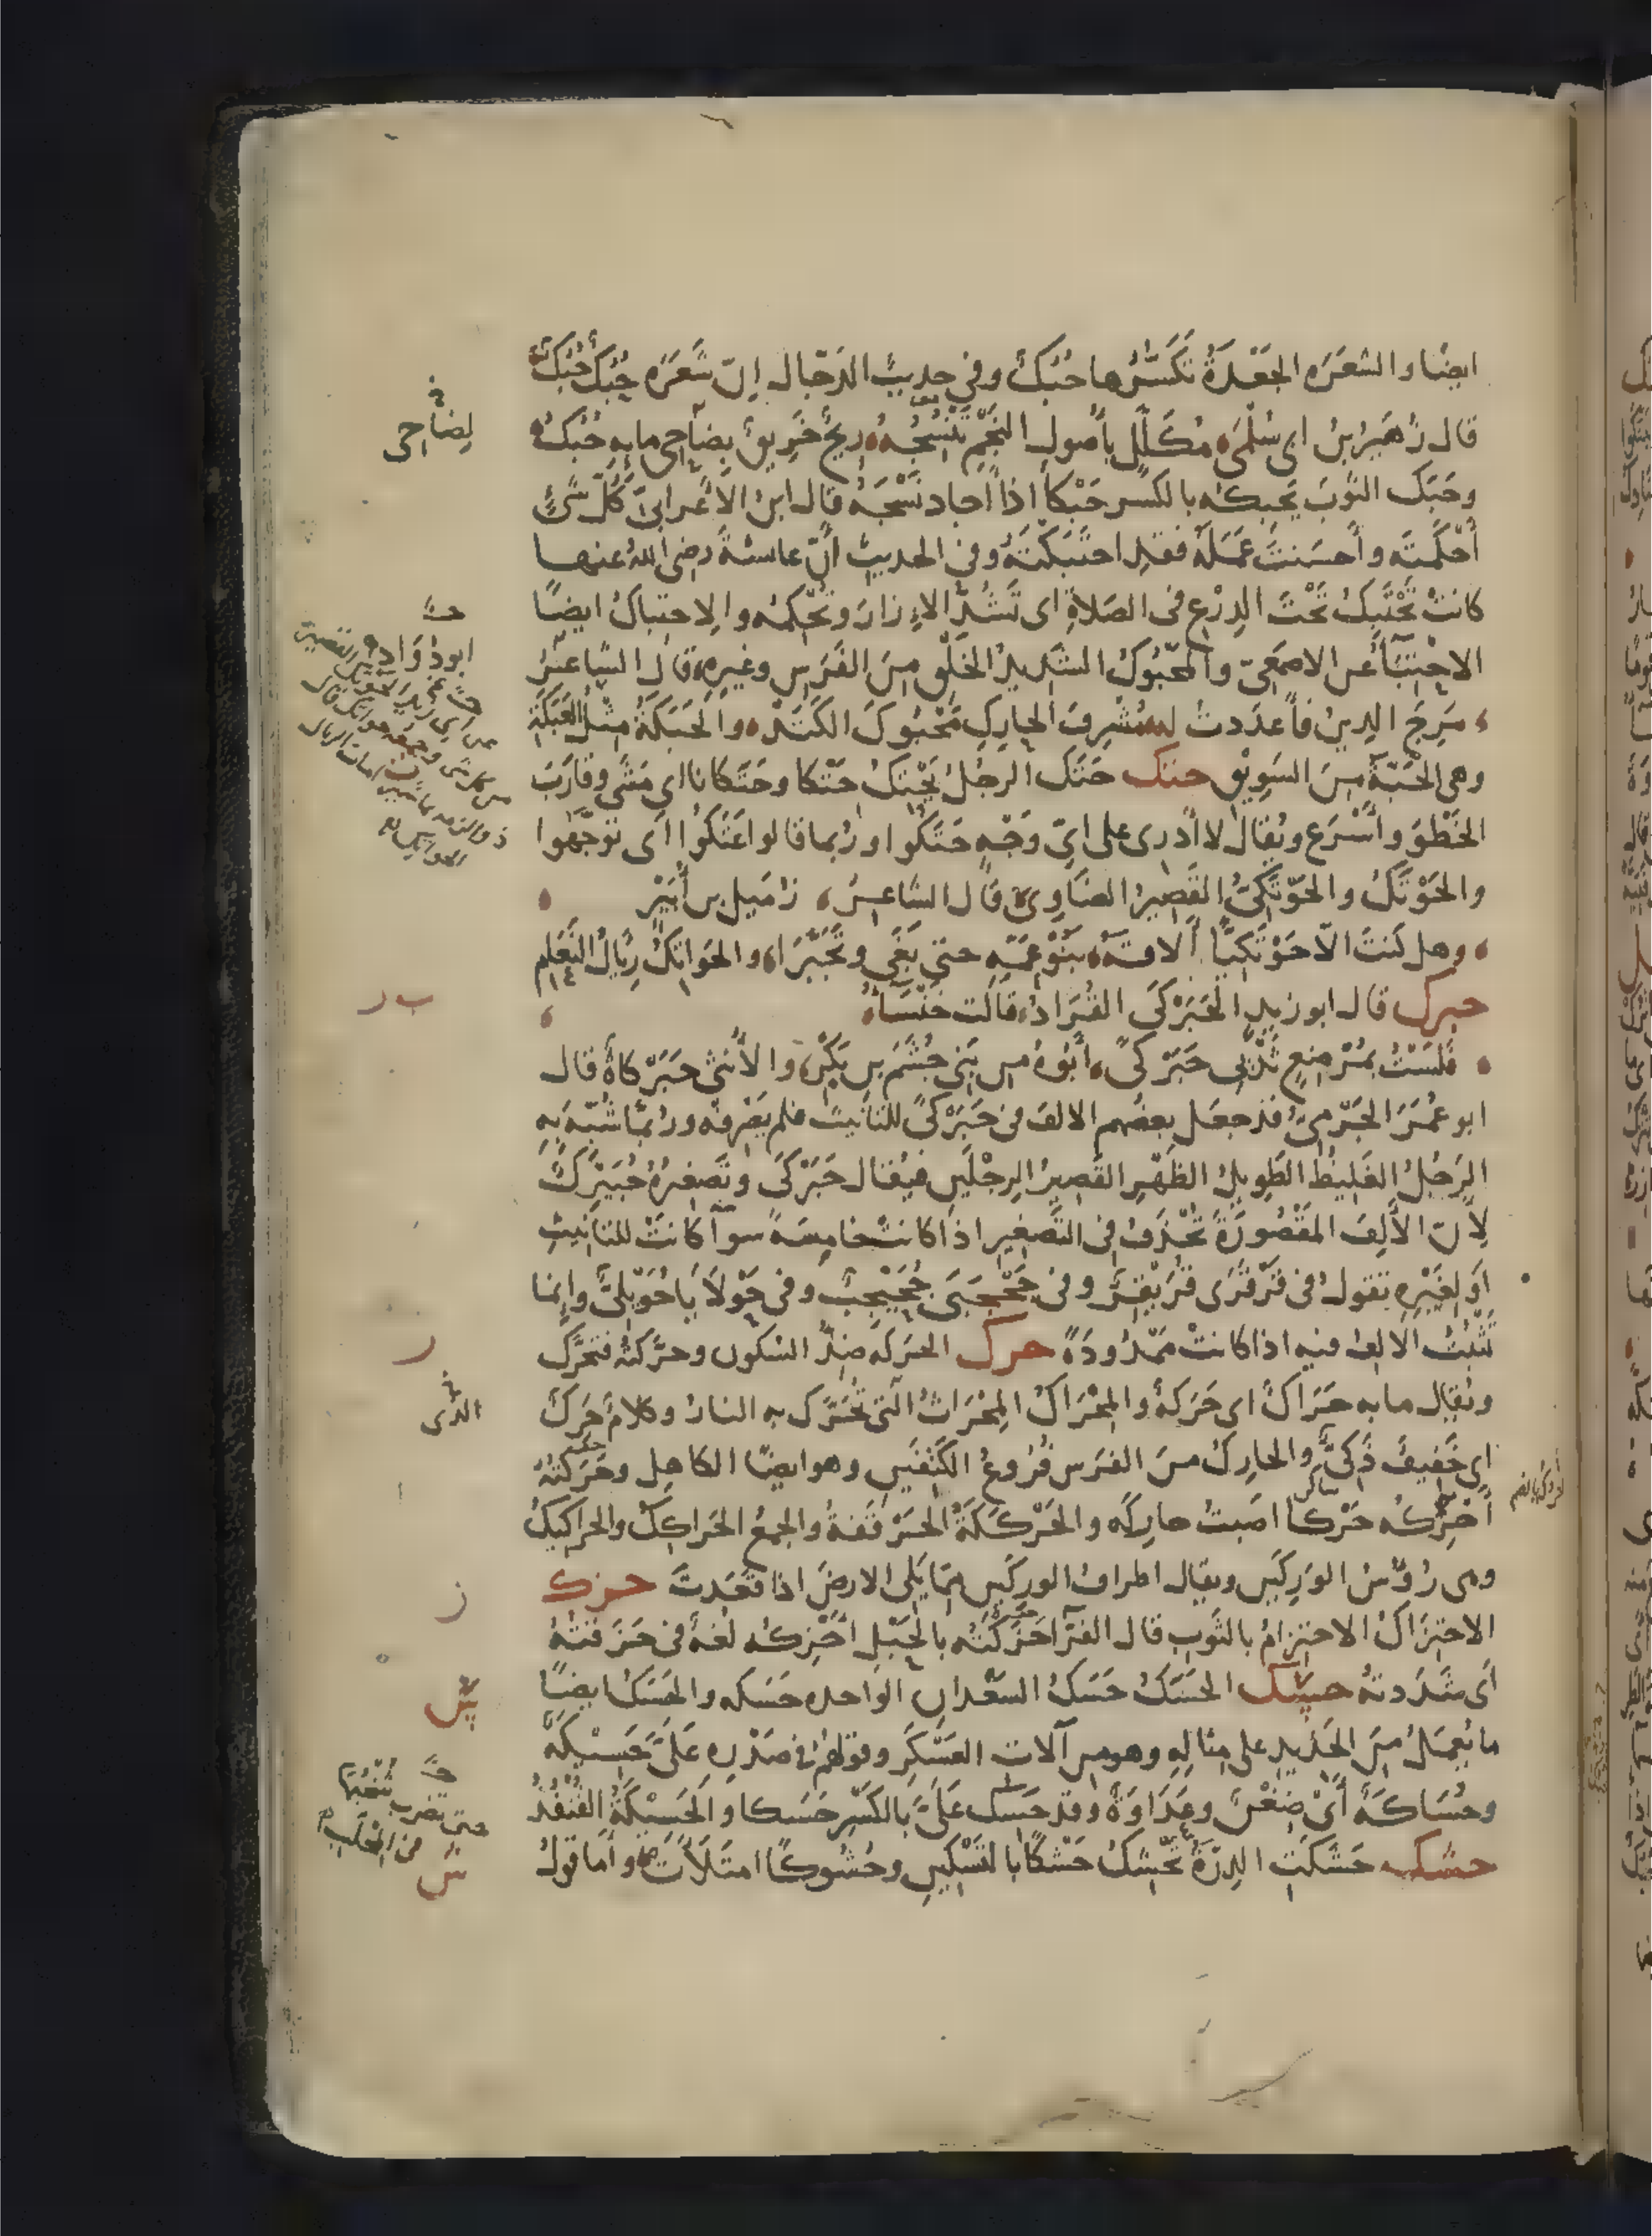 ايضًا والشعَرَه الجَعْدَةُ تكَسُّرُها حُبُكٌ وفى حديث الدَجّال إنّ شَعَرَه حُبُكٌ حُبُكٌ
قال زُهَيرُ بنُ ابى سُلْمَى مُكَلَّلٍ بأصولِ النَجْمِ تَنْسُجُهُ ريحٌ خَرِيقٌ بِضاحى مايِهِ حُبُكُ
وحَبَكَ الثَوبَ يحبِكه بالكسر حَبْكاً اذا أجاد نَسْجَهُ قال ابنُ الأعْرابىّ كُلّ شَىءٍ
أحْكَمتَه وأحسَنتَ عَمَلَهُ فقد احتَبَكْتَهُ وفى الحديث أنّ عائشةَ رضى اللهُ عنها
كانتْ تَحْتَبِكُ تَحْتَ الدِرْعِ فى الصَلاةِ اى تَشُدُّ الإزارَ وتُحْكِمُه والاحتِباكُ ايضًا
الاحْتِبَآءُ عن الاصمَعِىّ والمحْبُوكُ الشَدِيدُ الخَلْقِ مِنَ الفَرَسِ وغيرِهِ قال الشاعِرُ
مَرِجَ الدِينُ فأعدَدتُ له مُشْرِفَ الحارِكِ مَحْبُوكَ الكَتَدْ والحَبَكَةُ مِثْلُ العَبَكَةِ
وهى الحَبّةُ مِنَ السَوِيْقِ حتك حَتَكَ الرجُلُ يَحْتِكُ حَتْكا وحَتَكانا اى مَشَى وقارَبَ
الخَطْوَ وأسْرَع ويُقال لا أدرى على اىّ وَجْهٍ حَتَكُوا وربما قالوا عَتَكُوا اى توَجّهوا
والحَوْتَكُ والحَوْتَكِىُّ القَصِيرُ الضَاوِىّ قال الشاعِرُ زُمَيل بن أُبَيْرٍ
وهل كُنتَ الّا حَوْتَكِيًّا ألاقَهُ بَنُو عَمِّهِ حتى بَغَى وتَجَبَّرَا والحَواتِكُ رِئالُ النَعامِ
حبرك قال ابو زيدٍ الحَبَرْكَى القُرَادُ قالت خَنْسَاءُ
فلَسْتُ بمُرْضِعٍ ثَدْيِى حَبَرْكىً أبُوهُ مِن بَنِى جُشَمَ بنِ بَكْرٍ والأُنْثَى حَبَرْكاةٌ قال
ابو عُمَرَ الجَرْمِىُّ قد جعَل بعضُهم الالفَ فى حَبَرْكَى للتانيث فلم يَصْرِفْه وربّما شُبّهَ بِهِ
الرَجُلُ الغَلِيظُ الطَوِيلُ الظَهْرِ القَصِيرُ الرِجْلَينِ فيُقال حَبَرْكىً وتَصغِيرُهُ حُبَيْرِكٌ
لِأنّ الألِفَ المَقْصُورَةَ تُحْذَفُ فى التَصغِيرِ اذا كانتْ خامِسَةً سوآءٌ كانتْ للتانيثِ
أو لِغَيْرِهِ تقولُ فى قَرْقَرَى قُرَيْقِرٌ وفى جَحْجَبَى جُحَيْجِبٌ وفى حَوْلَايَا حُوَيْلِىٌّ وإنما
تَثْبُتُ الالِفُ فيه اذا كانتْ مَمْدُودَةً حرك الحَرَكةُ ضِدُّ السُكون وحرّكتُه فتحرَّك
ويُقال ما به حَرَاكٌ اى حَرَكةٌ والمِحْرَاكُ المِحْرَاثُ التى تُحَرّك به النارُ وغلامٌ حَرِكٌ
اى خَفِيفٌ ذَكِىٌّ والحارِكُ مِنَ الفرَسِ فُرُوعُ الكَتِفَيْنِ وهو ايضًا الكاهِلُ وحَرَكْتُهُ
أحْرُكُه حَرْكا اصَبتُ حارِكَه والحَرْكَكَةُ الحَرْقَفةُ والجمعُ الحَراكِكُ والحراكِيكُ
وهى رُؤُسُ الوَرِكَيْنِ ويقال اطراف الوركَين مِمّا يَلِى الارضَ اذا قعَدتَ حزك
الاحتِزَاكُ الاحتزامُ بالثَوبِ قال الفَرّآءُ حَزَكْتُه بالحَبْلِ أحْزِكُه لُغةٌ فى حَزَقتُهُ
أى شَدَدتهُ حسك الحَسَكُ حَسَكُ السَعْدانِ الواحده حَسَكه والحَسَكُ ايضًا
ما يُعمَلُ مِنَ الحَدِيدِ على مِثالِهِ وهو من آلات العَسْكَرِ وقولُهُم فى صَدْرِهِ عَلَىَّ حَسِيكَةٌ
وحُسَاكَةٌ أىْ ضِغْنٌ وعَدَاوَةٌ وقد حَسِكَ عَلَىَّ بالكَسْرِ حَسَكا والحَسِيْكَةُ القُنْفُذُ
حشك حَشَكَتِ الدِرّةُ تَحْشِكُ حَشْكًا بالتَسْكِينِ وحُشُوكًا امتَلَأتْ وأما قولُ
لِضاحى
ب ر
ر
الذى
ز
س
حتى تضرب
ش